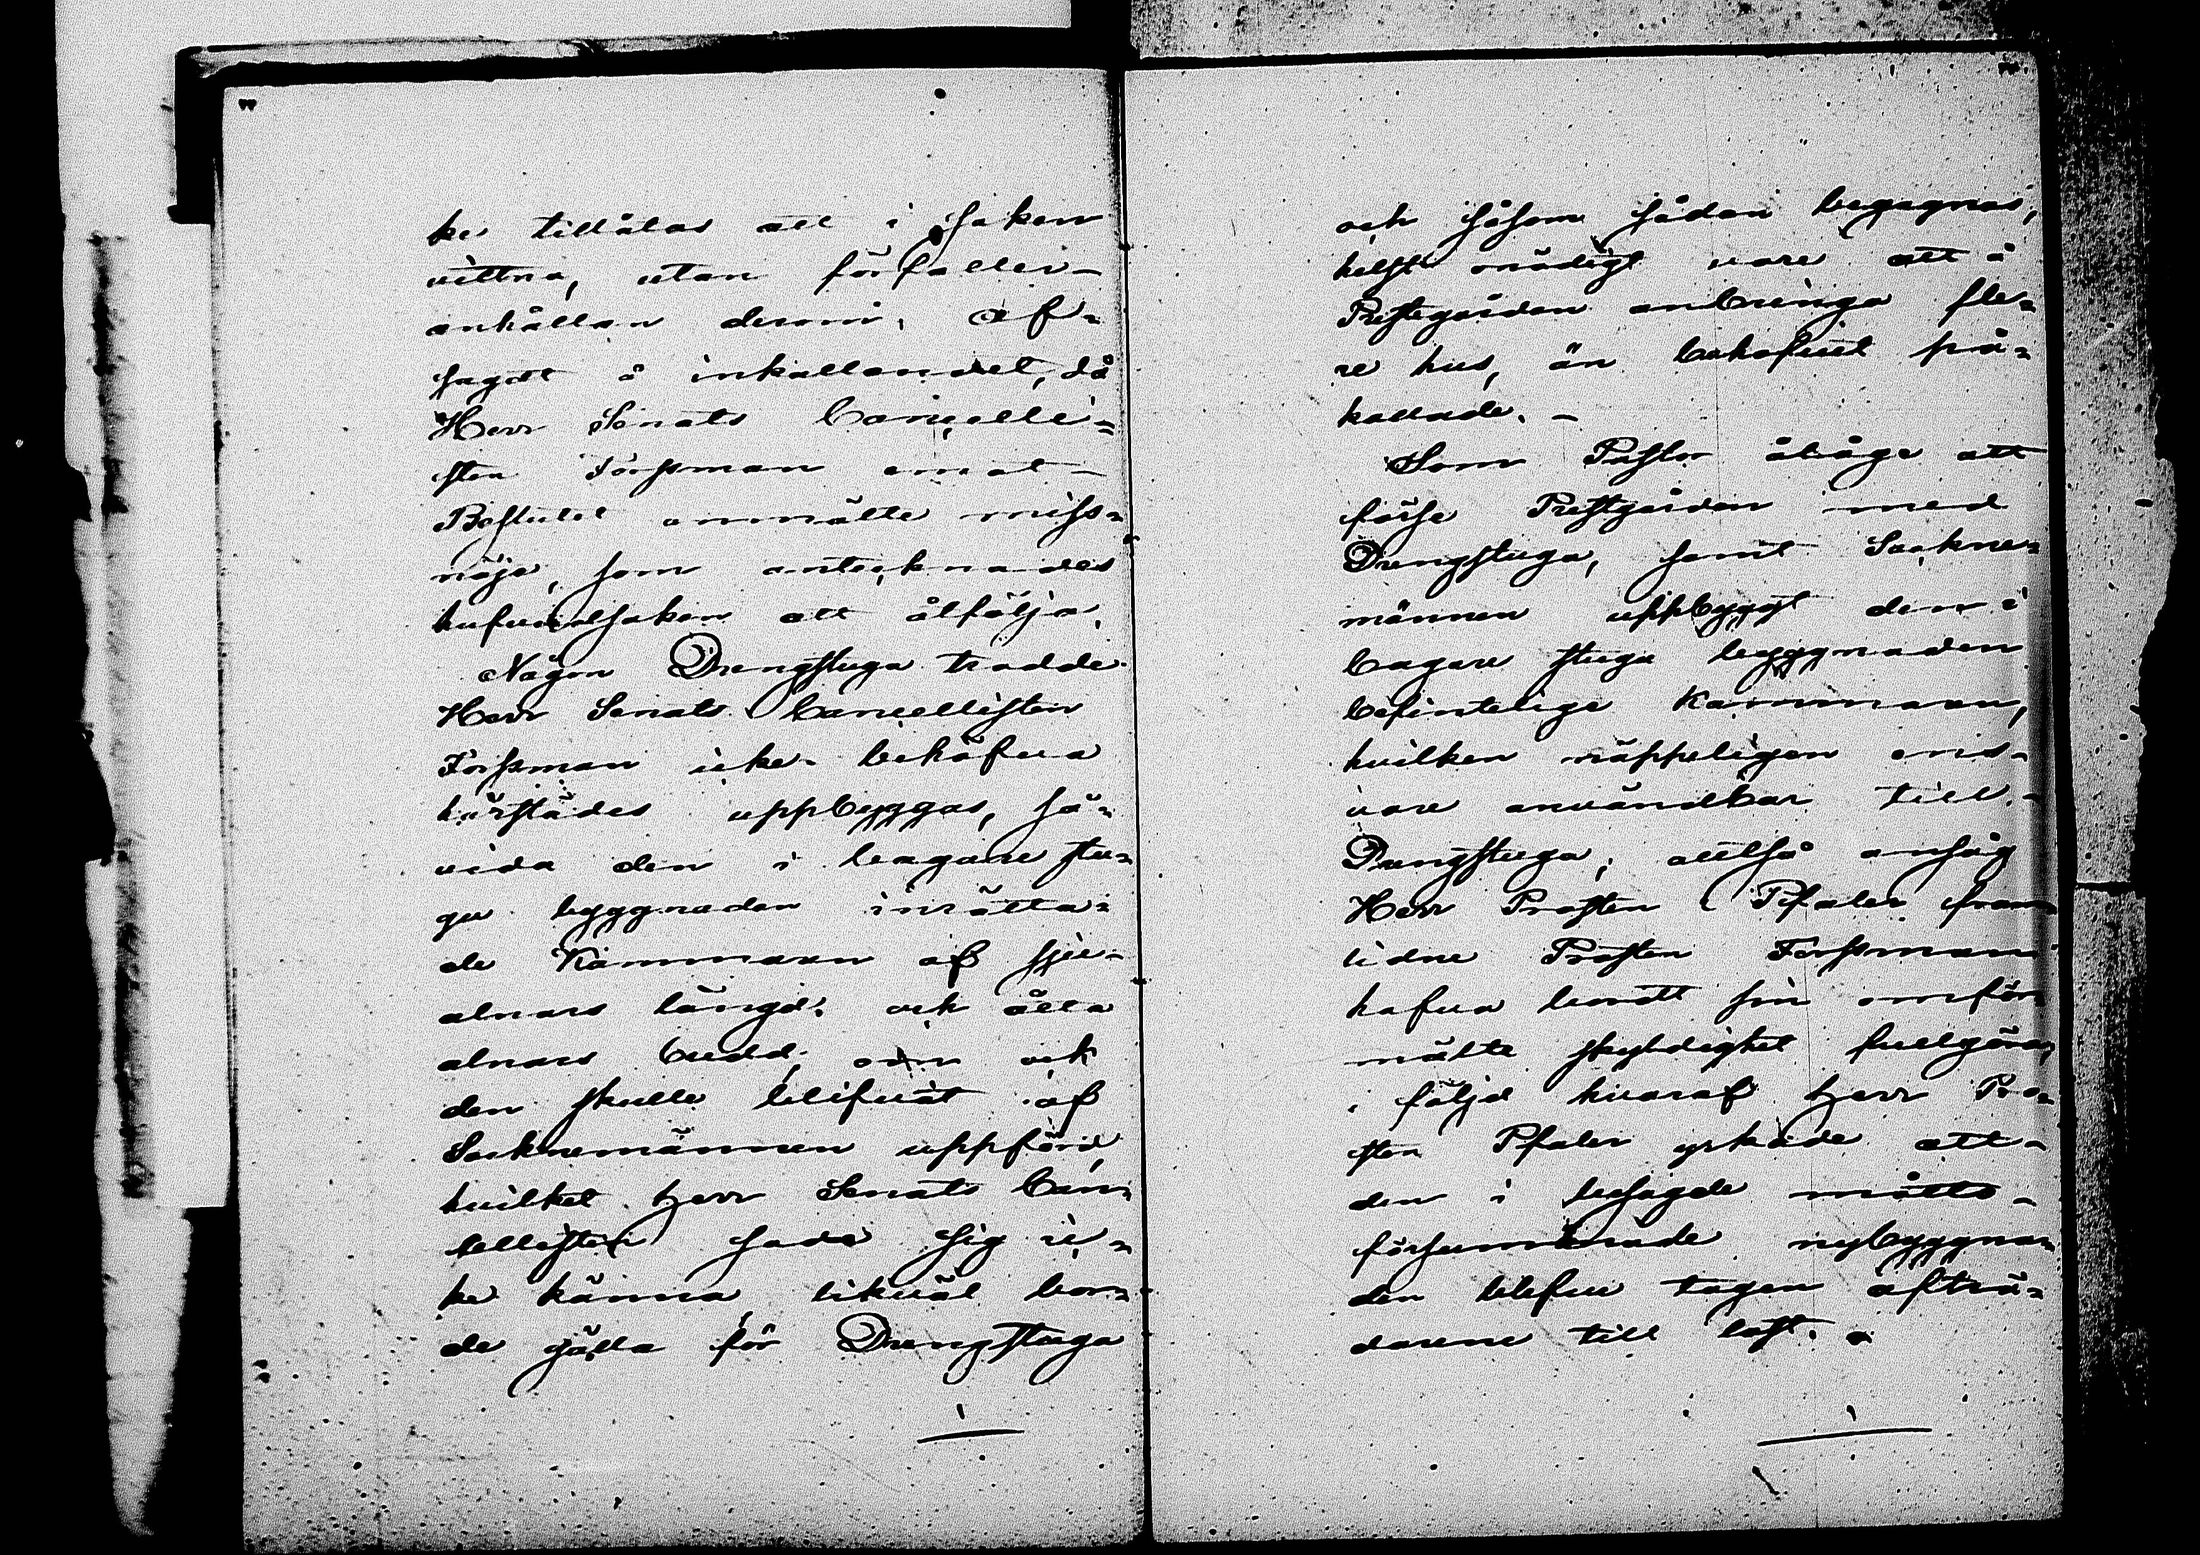 ke tillåtas att i saken
vittna, utan förfaller
anhållan derom. Af-
sagdt å inkallandet, då
Herr Senats Cancelli-
sten Forssman emot
Beslutet anmälte miss-
nöje, som antecknades
hufvudsaken att åtfölja.
Någon Drengstuga trodde
Herr Senats Cancellisten
Forssman icke behöfva
härstädes uppbyggas, så-
vida den i bagare stu-
gu byggnaden inrätta-
de Kammaren af sju
alnars längd och åtta
alnars bredd, om ock
den skulle blifvit af
Socknemännen uppförd,
hvilket Herr Senats Can-
cellisten sade sig ic-
ke känna likväl bor-
de gälla för Drengstuga
och såsom sådan begagnas,
helst onödigt vore att å
Prestegården anbringa fle-
re hus, än behofvet på-
kallade.
Som Prosten ålåge att
förse Prestgården med
Drengstuga, samt Sockne-
männen uppbyggt den i
bagare stugu byggnaden
befintelige Kammaren,
hvilken näppeligen ens
vore användbar till
Drengstuga; alltså ansåg
Herr Prosten Pfaler fram-
lidne Prosten Forssman
hafva bordt sin omför-
mälte skyldighet fullgöra,
i följd hvaraf Herr Pro-
sten Pfaler yrkade att
den i besagde måtto
försummade nybyggna-
den blefve tagen afträ-
darene till last.